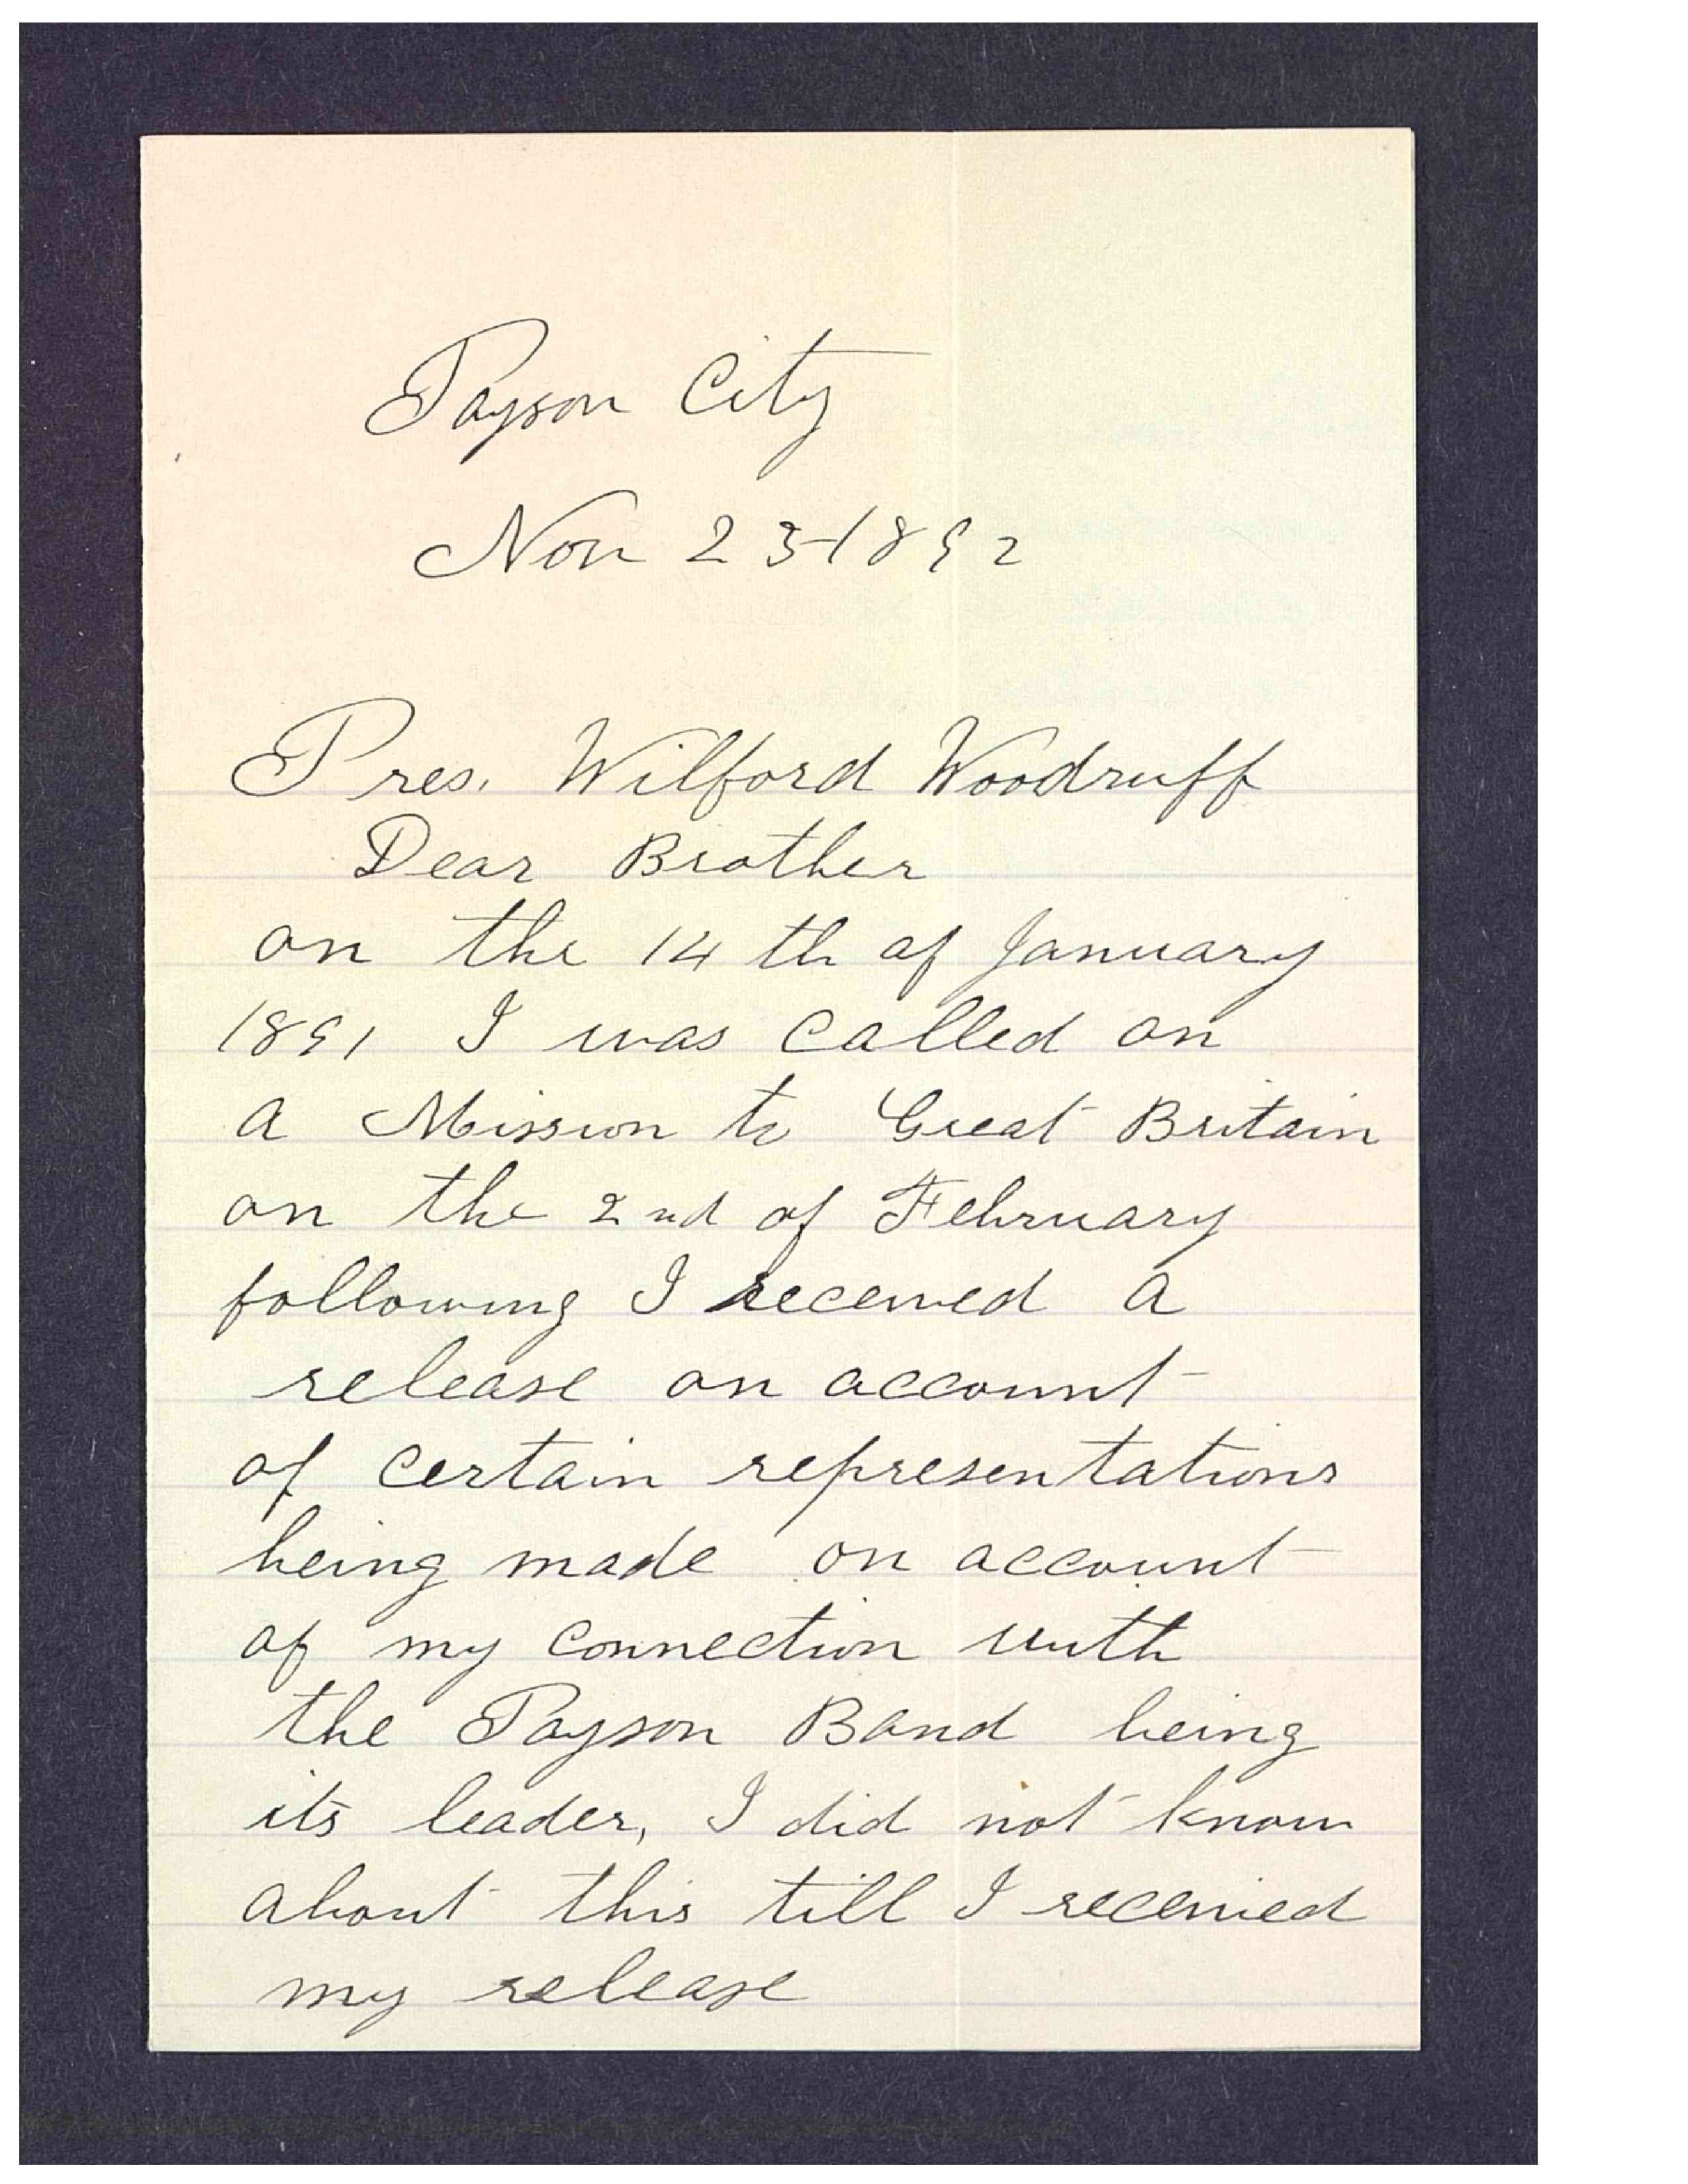 Payson City
Nov 23-1892
Pres. Wilford Woodruff
Dear Brother
on the 14th of January
1891 I was called on
a Mission to Great Britain
on the 2nd of February
following I received a
release on account
of certain representations
being made on account
of my connection with
the Payson Band being
its leader, I did not know
about this till I received
my release